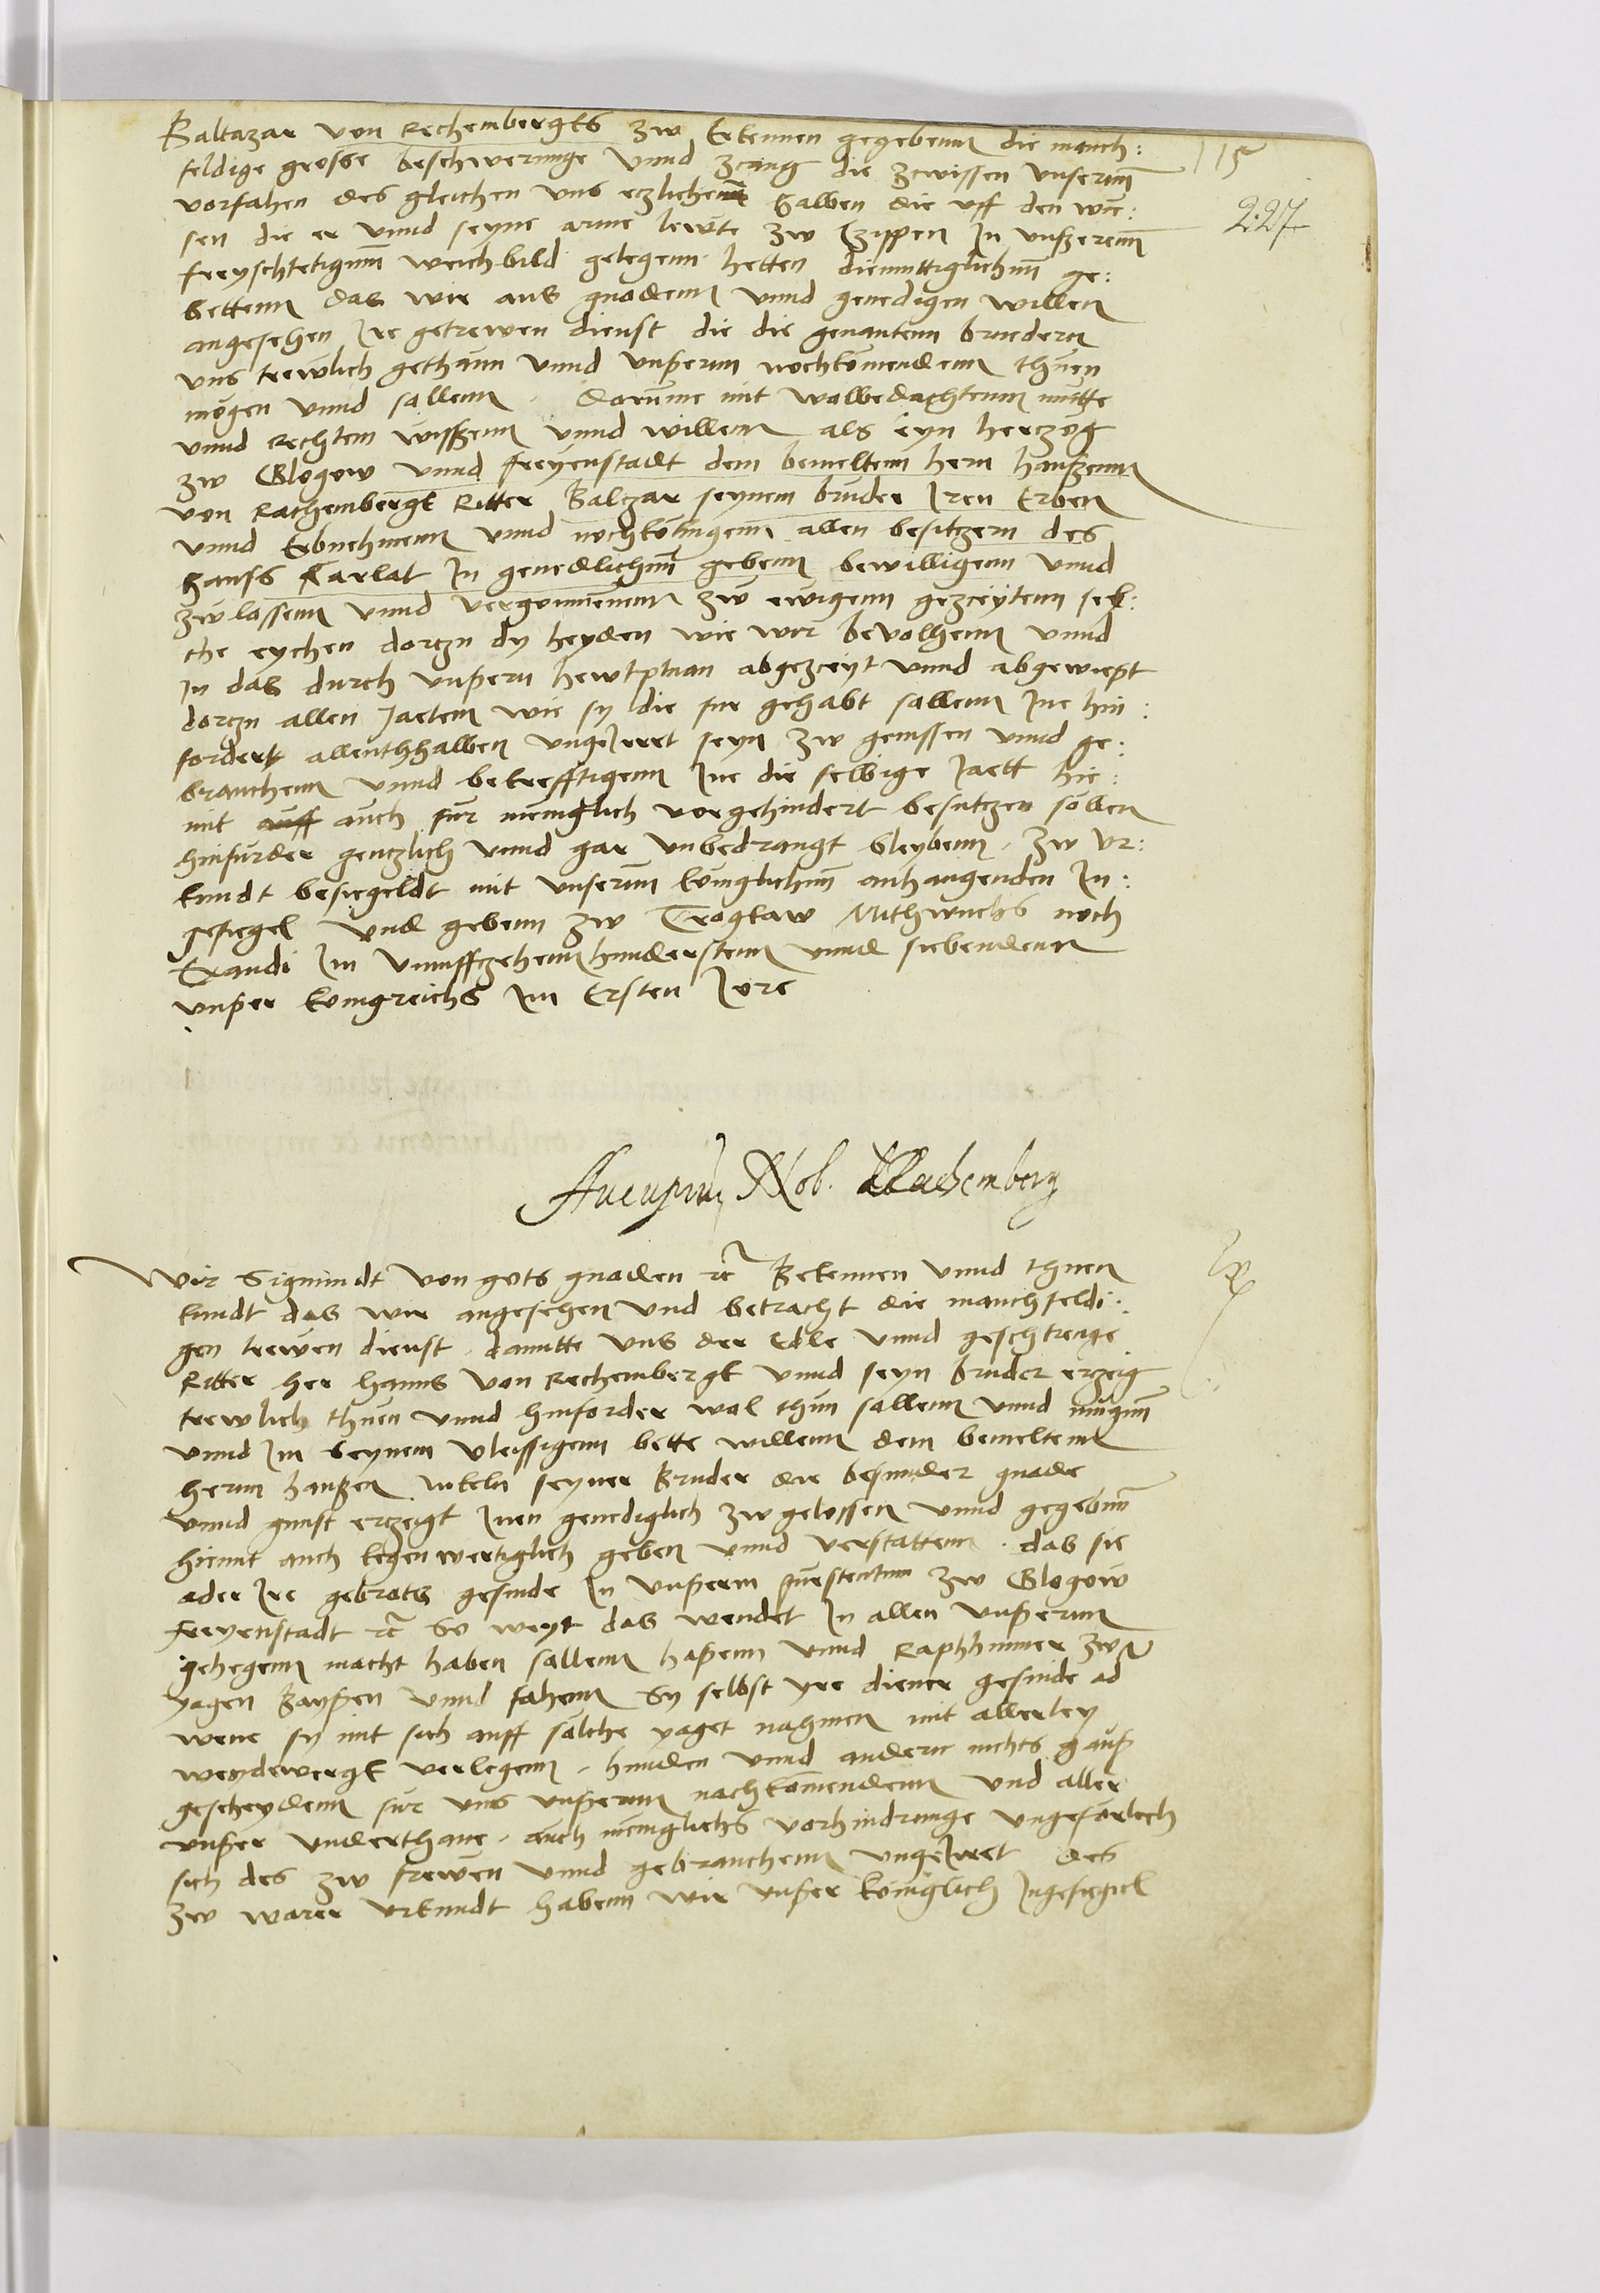 Baltazar von Rechembergts zw Erkennen gegebenn die manch:
feldige grosse beschwerunge vnnd zcang die zcwissen vnserm
vorfahen des gleichen vns etzlichenn halben die vff den wie:
sen die er vnnd seyne arme lewte zw Czippen In vnsseremm
freyschtetigenn weichbild gelegenn hetten diemuttiglichenn ge:
bettenn das wir aus gnadenn vnnd genedigen willen
angesehen Ire getrewen dienst die die genantenn bruedern
vns trewlich gethann vnnd vnsserm nochkomendenn thuen
mögen vnnd sallenn . dorumme mit wolbedachtenn mutte
vnnd Rechtem wisssenn vnnd willenn als eyn hertzog
zw Glogow vnnd freyenstadt dem bemeltenn hern hanssenn
von Rachembergt Ritter Baltzar seynem bruder Iren Erben
vnnd Erbnehmenn vnnd nochkomlingenn allen besitzern des
hauss Carlat In genedlichenn gebenn bewilligenn vnnd
zwlossenn vnnd vergonnennenn zw ewigenn gezceytenn sel:
che eychen dorczu dy heyden wie wir bevolhenn vnnd
In das durch vnsern hewtptman abgezceyt vnnd abgewiest
dorczu allen Iacten wie sy die fur gehabt sallenn Ine hin:
fordert allenthhalben vngeIrret seyn zw genissen vnnd ge:
brauchenn vnnd bekrefftigenn Ine die selbige Iactt hie:
mit auch fur meniglich vorgehindert besitczen sollen
hinfurder gentzlich vnnd gar vnbedrangt bleybenn . zw vr:
kundt besiegeldt mit vnserm koniglichenn anhangenden In:
gesiegel vnd gebenn zw Trogkaw Mithwuchs noch
Exaudi Im vnnffczehennhunderstenn vnnd siebendenn
vnsser konigreichs Im Ersten Iore
115
227
Aucupium Nob. Rachemberg
Wir Sigmundt von gots gnaden etc Bekennen vnnd thuen
kundt das wir angesehen vnd betracht die manchfeldi:
gen trewen dienst . damitte vns der Edle vnnd geschtrenge
Ritter her hanns von Rechembergk vnnd seyn bruder erzeig
trewlich thuen vnnd hinforder wol thun sallenn vnnd mugenn
vnnd Im seynem vleissigenn bette willenn dem bemeltenn
hernn hanssen Nickeln seyner Bruder die besunder gnade
vnnd gunst erzeigt Inen genediglich zwgelossen vnnd gegebenn
hiemit auch kegenwertiglich geben vnnd verstattenn . das sie
ader Ire gebrots gesinde In vnsserm furstentum zw Glogow
freyenstadt etc So weyt das wendet In allen vnssernn
gehegenn macht haben sallenn hasenn vnnd Raphhunner zw
yagen Beyssen vnnd fahenn Sy selbst yre diener gesinde ad
wene sy mit sich auff salche yaget nahmen mit allerley
weydewergk verlegenn . hunden vnnd andere nichts
gescheydenn fur vns vnssernn nachkomendenn vnd aller
vnsser vnderthane . auch meniglichs vorhindrunge vngeforlich
sich des zw frewen vnnd gebrauchenn vngeIrret des
zw warer vrkundt habenn wir vnsser koniglich Ingesiegel